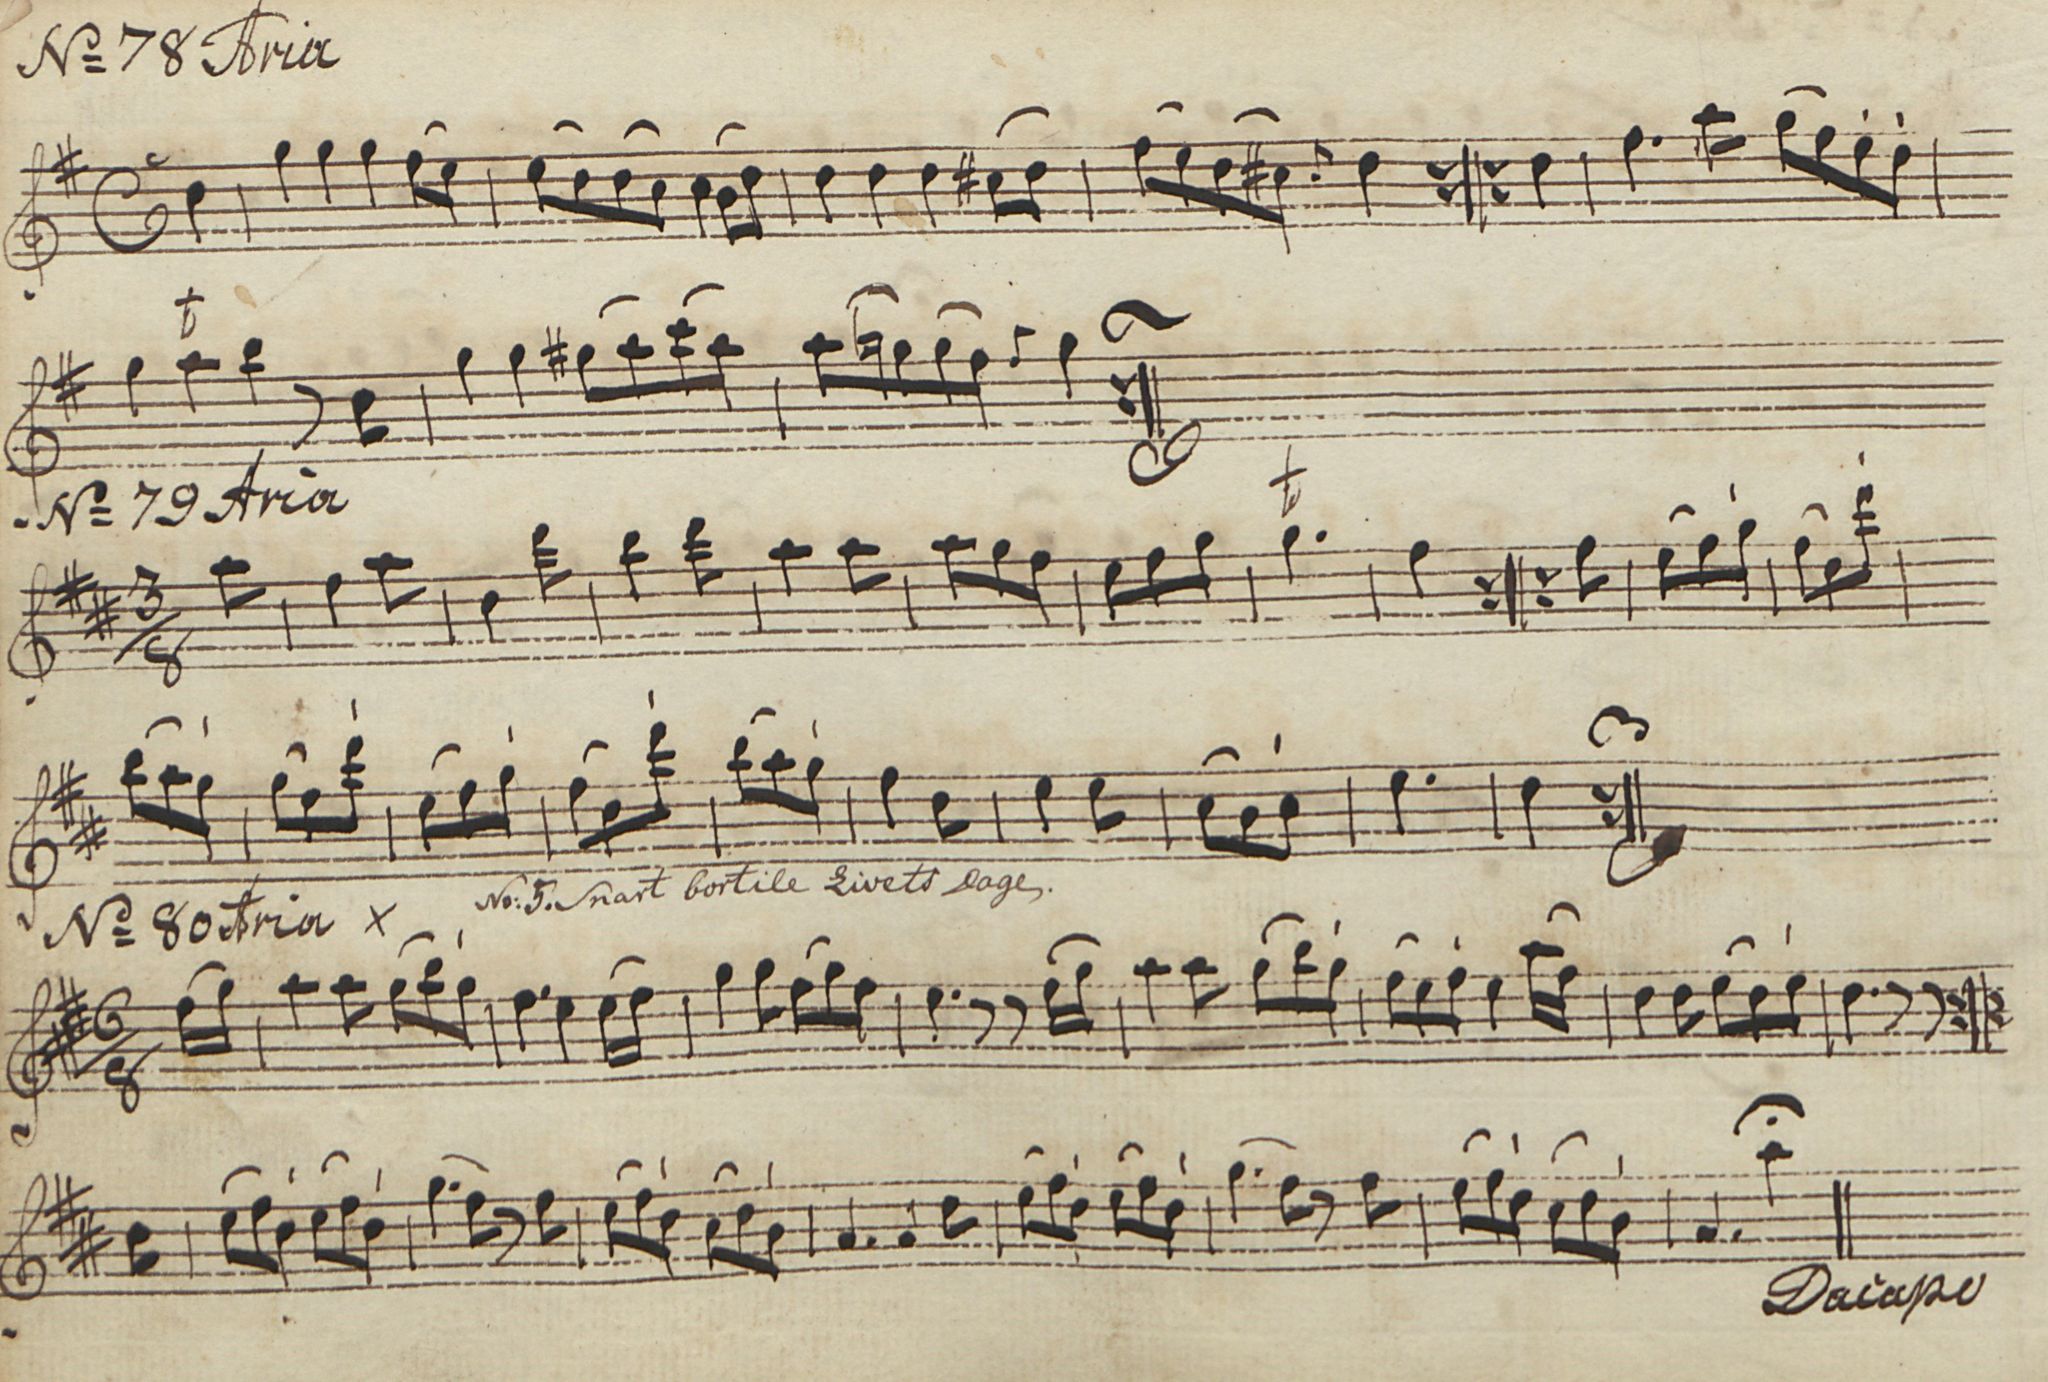 No 78 Aria
t
No 79 Aria
t
3/8
No 80 Aria x No: 5. Snart bortile Livets Dage,.
6/8
Dacapo